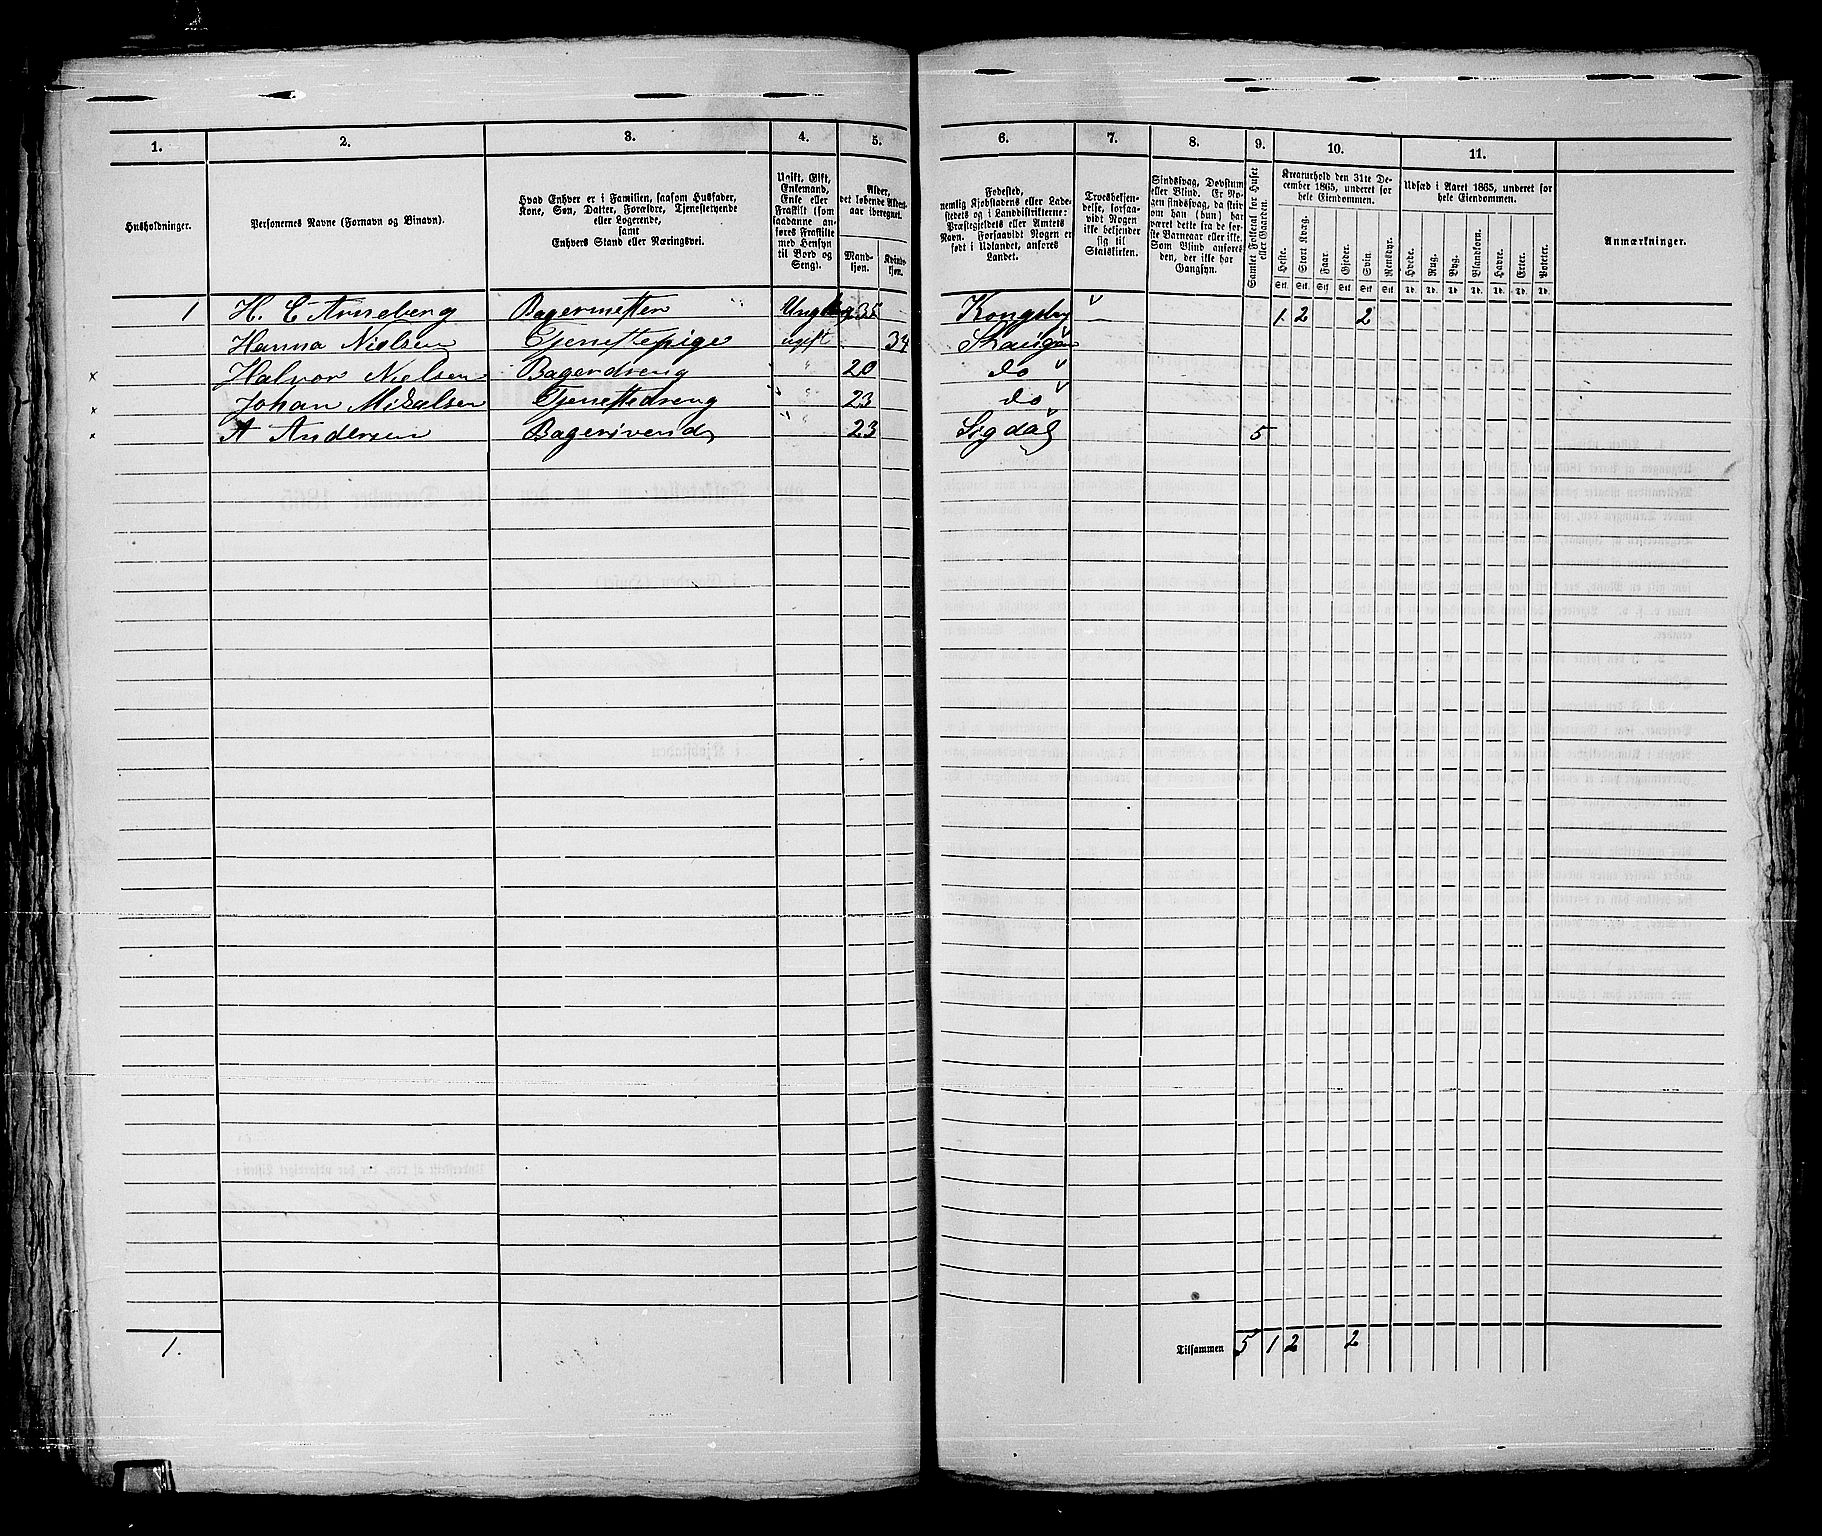 1. 2. 3. 4. 5. 6. 7. 8. 9. 10. 11.
Husholdninger.
Personernes Navne (Fornavn og Binavn).
Hvad Enhver er i Familien, saasom Husfader,
Kone, Søn, Datter, Forældre, Tjenestetyende
eller Logerende,
samt
Enhvers Stand eller Næringsvei.
Ugift, Gift,
Enkemand,
Enke eller
Fraskilt (som
saadanne an-
føres Fraskilte
med Hensyn
til Bord og
Seng).
Alder,
det løbende Alders-
aar iberegnet.
Mand-
kjøn.
Kvinde-
kjøn.
Fødested,
nemlig Kjøbstadens eller Lade-
stedets og i Landdistrikterne:
Præstegjeldets eller Amtets
Navn. Forsaavidt Nogen er
født i Udlandet, anføres
Landet.
Troesbekjen-
delse, forsaa-
vidt Nogen
ikke bekjender
sig til
Statskirken.
Sindssvag, Døvstum
eller Blind. Er No-
gen sindssvag, da skriv
om han (hun) har
været dette fra de før-
ste Barneaar eller ikke.
Som Blind anføres
den, der ikke har
Gangsyn.
Samlet Folketal for Huset
eller Gaarden.
Kreaturhold den 31te De-
cember 1865, underet for
hele Eiendommen.
Heste. Stort Kvæg. Faar. Gjeder. Svin. Rensdyr.
Stk. Stk. Stk. Stk. Stk. Stk.
Udsæd i Aaret 1865, underet for
hele Eiendommen.
Hvede. Rug. Byg. Blandkorn. Havre. Erter. Poteter.
Td. Td. Td. Td. Td. Td. Td.
Anmærkninger.
1 H. C Arneberg Bagermester 35 Kongsby 1 2 2
Hanna Nielsen Tjenestepige ugift 34
x Halvor Nielsen Bagerdreng " 20 do
x Johan Mikalsen Tjenestedreng " 23 do
x A Andersen Bagersvend " 23 Sigdal 5
1. Tilsammen 5 1 2 2